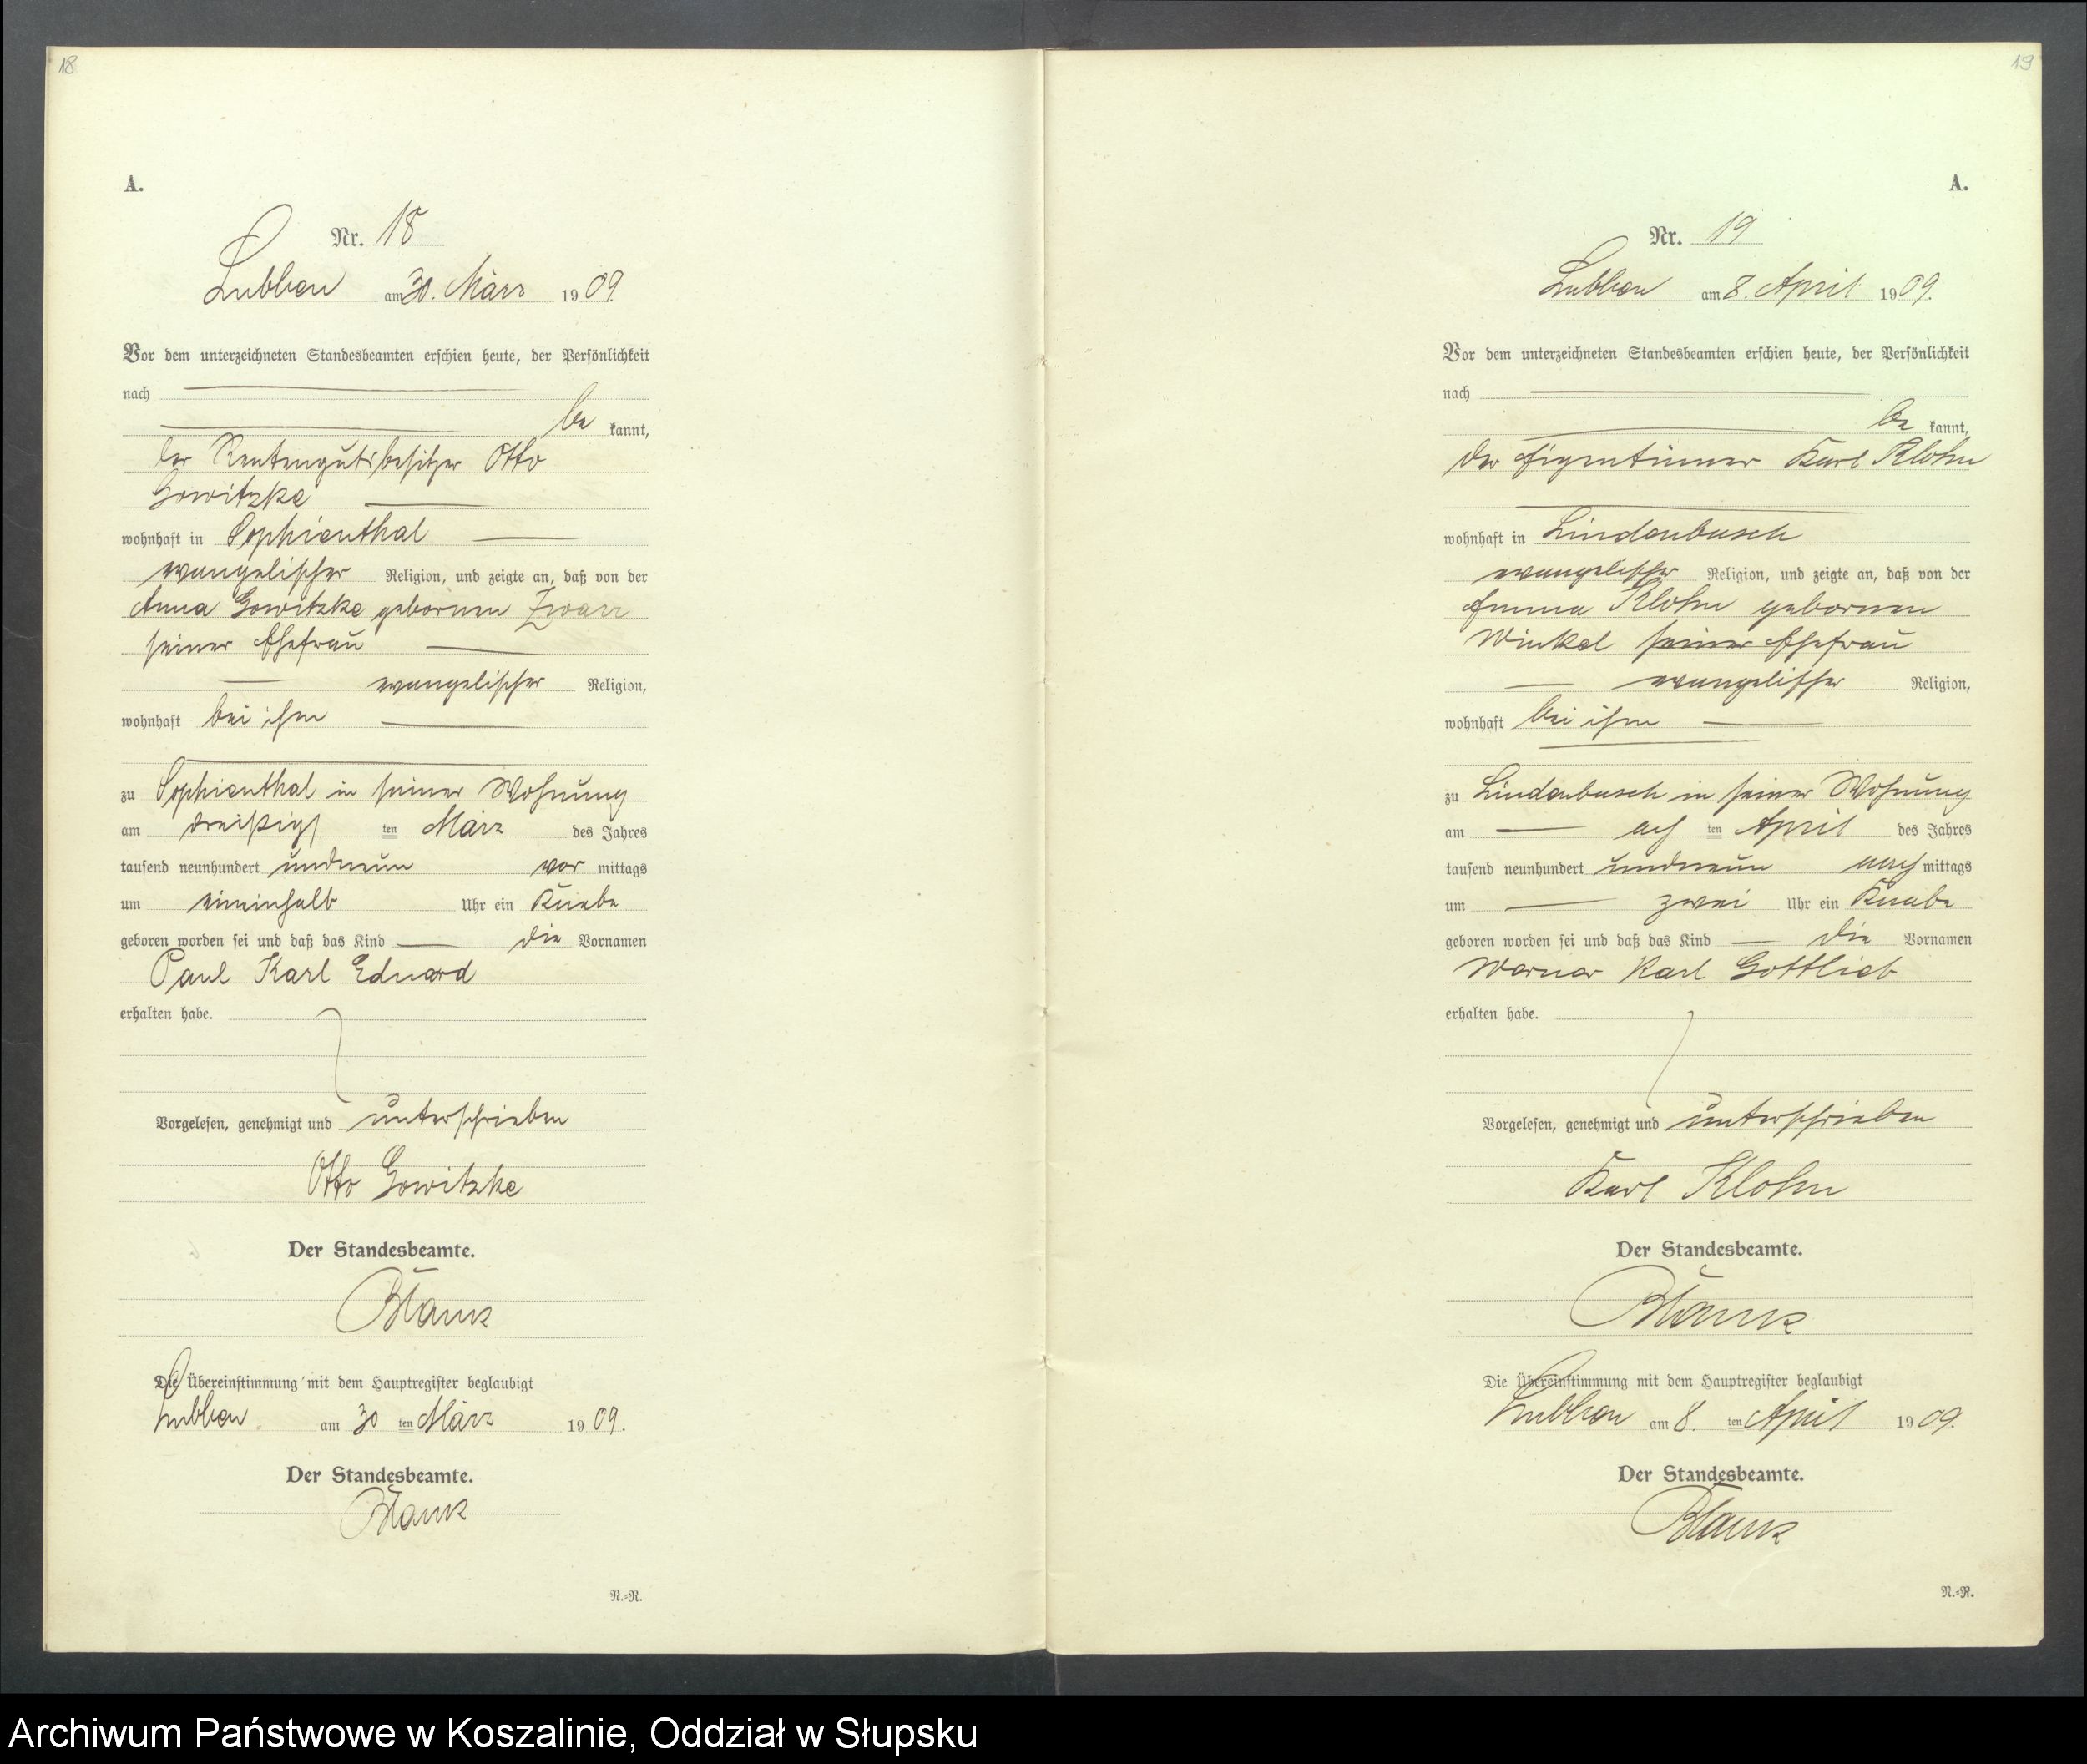 18
A.
Nr. 18
Lubben am 30. März 1909.
Vor dem unterzeichneten Standesbeamten erschien heute, der Persönlichkeit
nach
be kannt,
der Rentengutsbesitzer Otto
Gowitzke
wohnhaft in Sophienthal
evangelischer Religion, und zeigte an, daß von der
Anna Gowitzke gebornen Zwarr
seiner Ehefrau
evangelischer Religion,
wohnhaft bei ihm
zu Sophienthal in seiner Wohnung
am dreißigs ten März des Jahres
tausend neunhundert undneun vor mittags
um eineinhalb Uhr ein Knabe
geboren worden sei und daß das Kind die Vornamen
Paul Karl Eduard
erhalten habe.
Vorgelesen, genehmigt und unterschrieben
Otto Gowitzke
Der Standesbeamte.
Blank
Die Übereinstimmung mit dem Hauptregister beglaubigt
Lubben. am 30 ten März 1909.
Der Standesbeamte.
Blank
N.=R.
19
A.
Nr. 19
Lubben am 8. April 1909.
Vor dem unterzeichneten Standesbeamten erschien heute, der Persönlichkeit
nach
be kannt,
der Eigentümer Karl Klohn
wohnhaft in Lindenbusch
evangelischer Religion, und zeigte an, daß von der
Emma Klohn gebornen
Winkel seiner Ehefrau
evangelischer Religion,
wohnhaft bei ihm
zu Lindenbusch in seiner Wohnung
am ach ten April des Jahres
tausend neunhundert undneun nach mittags
um zwei Uhr ein Knabe
geboren worden sei und daß das Kind die Vornamen
Werner Karl Gottlieb
erhalten habe.
Vorgelesen, genehmigt und unterschrieben
Karl Klohn
Der Standesbeamte.
Blank
Die Übereinstimmung mit dem Hauptregister beglaubigt
Lubben am 8. ten April 1909.
Der Standesbeamte.
Blank
N.=R.
Archiwum Państwowe w Koszalinie, Oddział w Słupsku